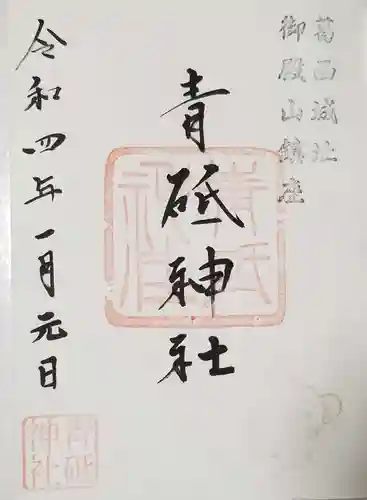 葛西城址
御殿山鎮座
青砥神社
令和四年一月元日
青砥神社
青砥神社